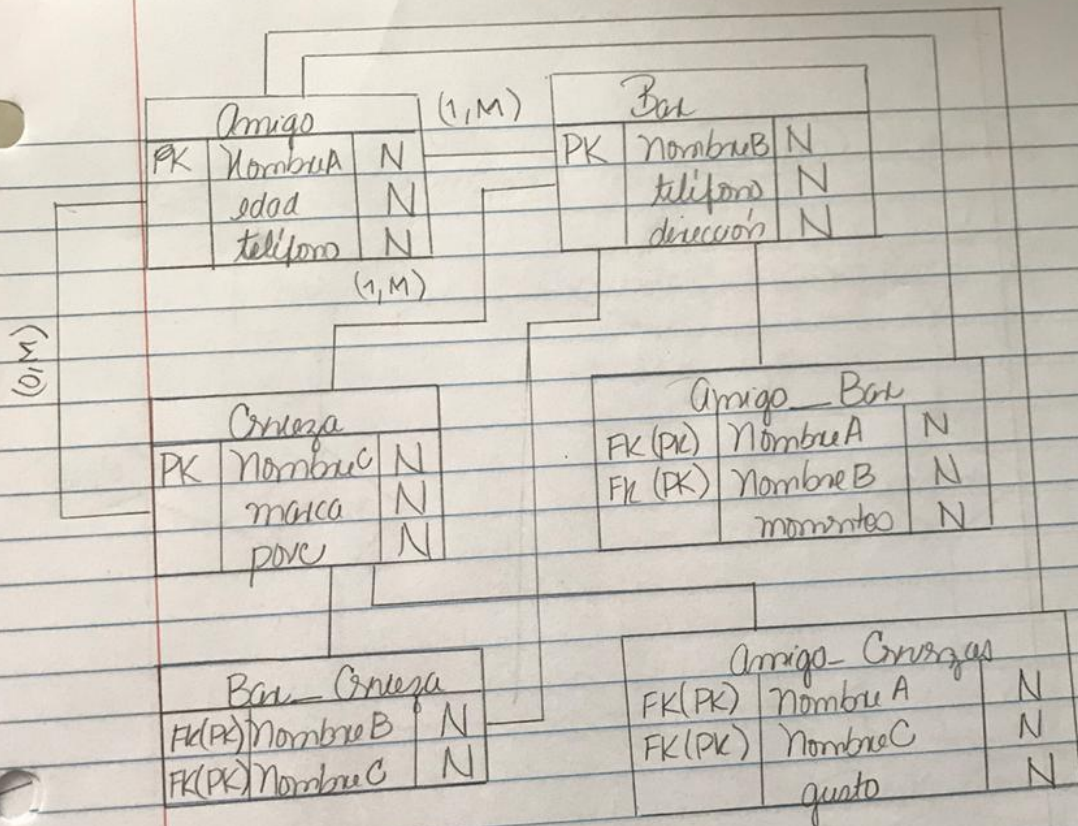 Amigo
(1,M)
Bar
PK NombreA N
edad N
teléfono N
PK nombreB N
teléfono N
dirección N
(1,M)
(0,M)
Cerveza
PK NombreC N
marca N
porc N
Amigo_Bar
FK(PK) NombreA N
FK (PK) NombreB N
N
Bar_Cerveza
FK(PK) NombreB N
FK(PK) NombreC N
Amigo_Cervezas
FK(PK) NombreA N
FK(PK) NombreC N
gusto N